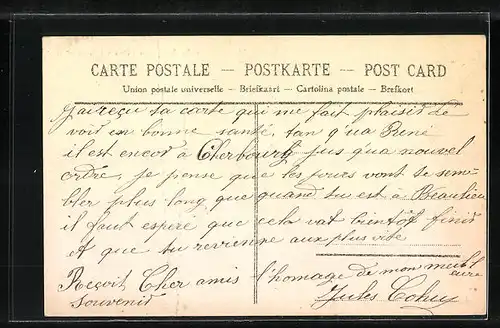 CARTE POSTALE — POSTKARTE — POST CARD
Union postale universelle — Briefkaart — Cartolina postale — Brefkort
J'ai reçu ta carte qui me fait plaisir de
voir en bonne santé, tan qu'a René
il est encor à Cherbourg jus qu'a nouvel
ordre, je pense que les jours vont se sem-
bler plus long que quand tu est à Beaulieu
il faut espere que cela vat bientôt finir
et que tu revienne aux plus vite
Reçoit Cher amis l'homage de mon meill
eure
Souvenir
Jules